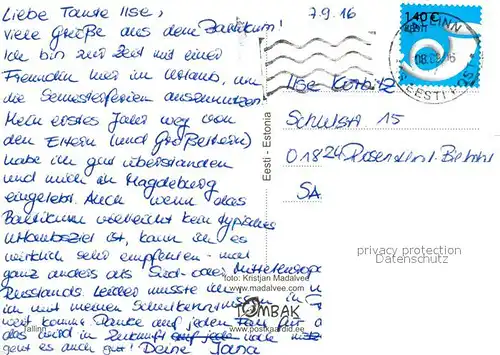 Liebe Tante Ilse,
7.9.16
viele Grüße aus dem Baltikum!
Ich bin zur Zeit mit einer
Freundin hier im Urlaub, um
die Semesterferien auszunutzen.
Mein erstes Jahr weg von
den Eltern (und Großeltern)
habe ich gut überstanden
und mich in Magdeburg
eingelebt. Auch wenn das
Baltikum vielleicht kein typisches
Urlaubsziel ist, kann ich es
wirklich sehr empfehlen - mal
ganz anders als Süd- oder Mitteleuropa
Russlands. Leider musste ich
mit meinen
weit kommt. Danke auf jeden Fall für
das wird in Zukunft auf jede
geht es auch gut! Deine Jana
1.40 €
EESTI
TALLINN
08.09.16
EESTI POST
Ilse
Schulstr. 15
01824 Rosenthal-Bielatal
SA
Eesti - Estonia
privacy protection
Datenschutz
foto: Kristjan Madalvee
www.madalvee.com
TOMBAK
www.postkaardid.ee
Tallinn